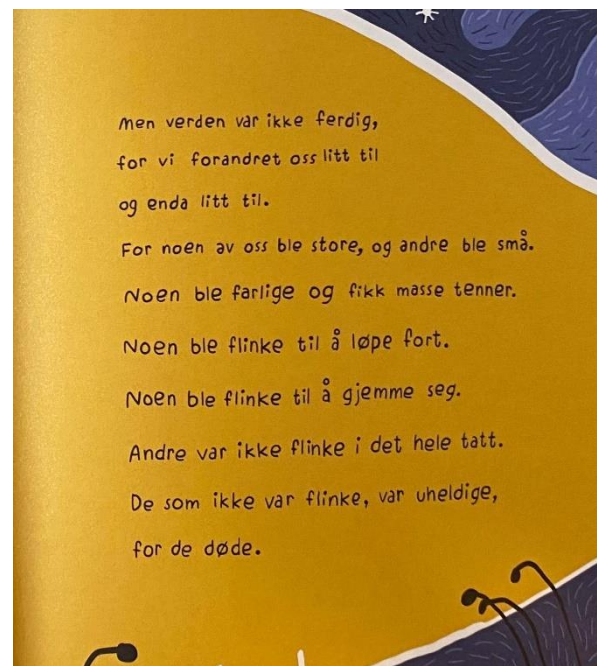 Men verden var ikke ferdig,
for vi forandret oss litt til
og enda litt til.
For noen av oss ble store, og andre ble små.
Noen ble farlige og fikk masse tenner.
Noen ble flinke til å løpe fort.
Noen ble flinke til å gjemme seg.
Andre var ikke flinke i det hele tatt.
De som ikke var flinke, var uheldige,
for de døde.